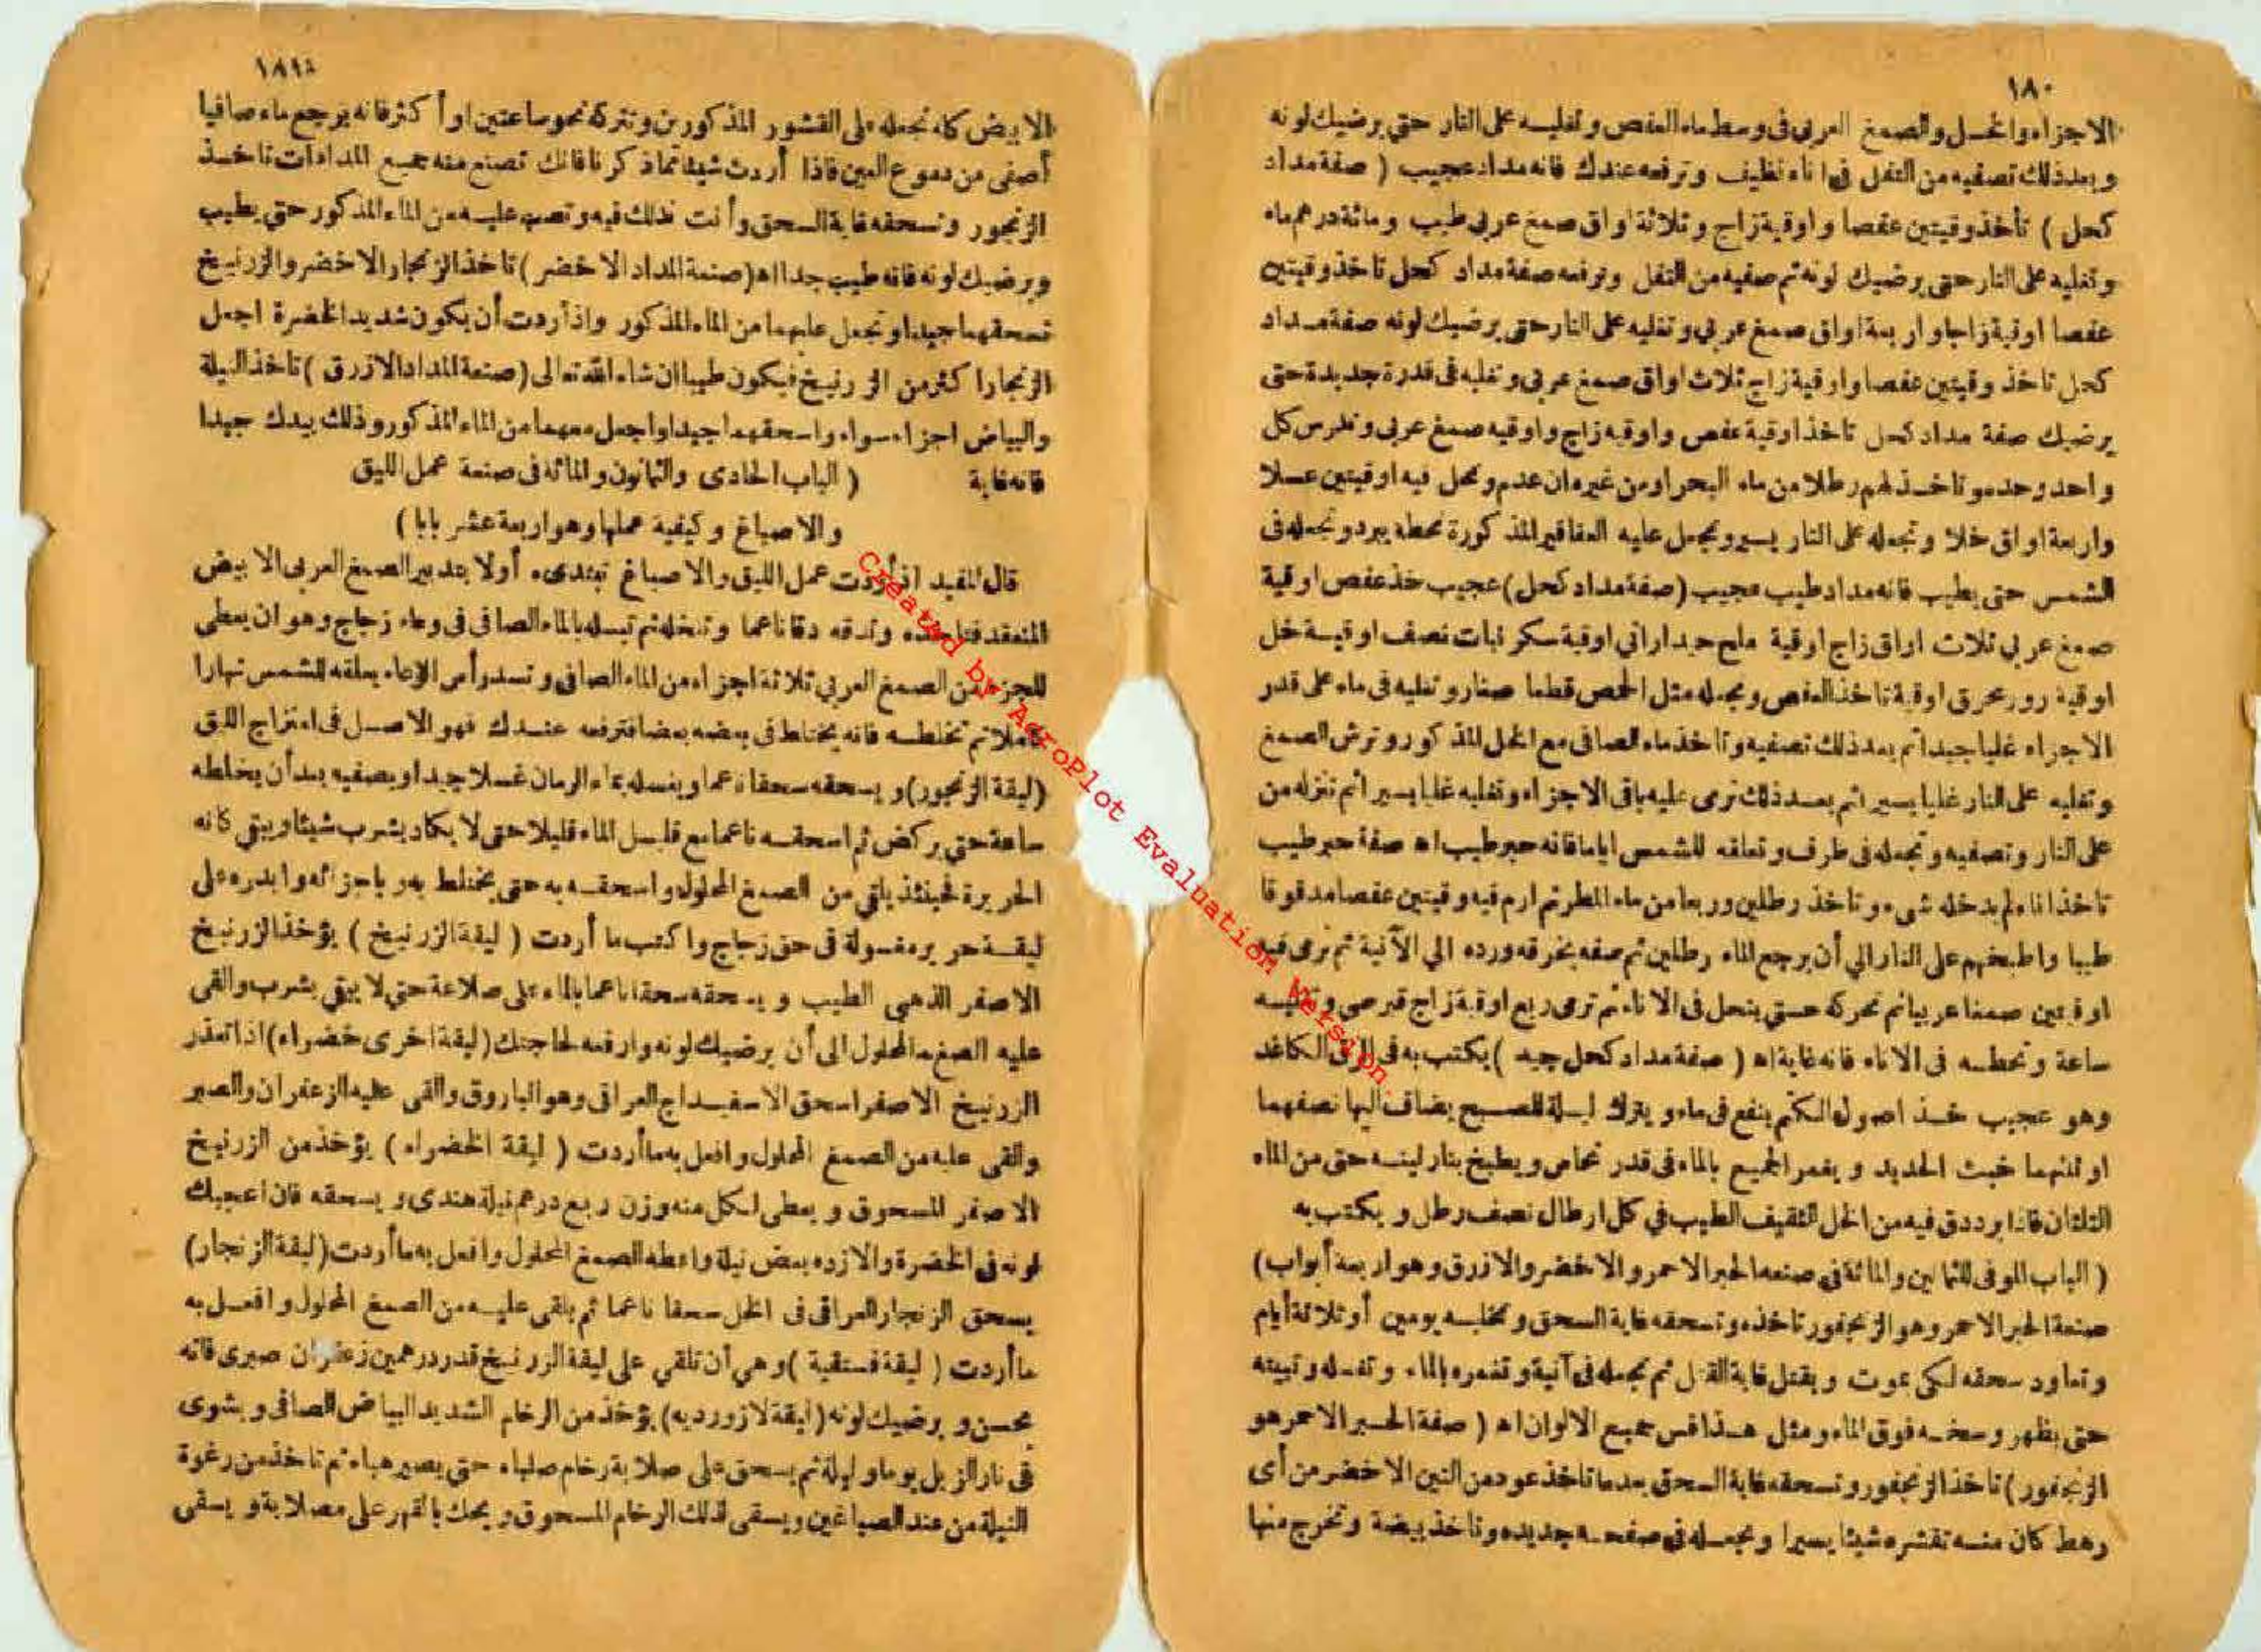 ١٨٠
الاجزاء والخل والصمغ العربى فى وسط ماء العفص وتغليه على النار حتى يرضيك لونه
وبعد ذلك تصفيه من الثفل فى اناء نظيف وترفعه عندك فانه مداد عجيب ( صفة مداد
كحل ) تأخذ وقيتين عفصا واوقية زاج وثلاثة اواق صمغ عربى طيب ومائة درهم ماء
وتغليه على النار حتى يرضيك لونه ثم صفيه من الثفل وترفعه صفة مداد كحل تاخذ وقيتين
عفصا اوقية زاجا واربعة اواق صمغ عربى وتغليه على النار حتى يرضيك لونه صفة مداد
كحل تاخذ وقيتين عفصا واوقية زاج ثلاث اواق صمغ عربى وتغليه فى قدرة جديدة حتى
يرضيك صفة مداد كحل تاخذ اوقية عفص واوقيه زاج واوقيه صمغ عربى وتهرس كل
واحد وحده وتاخذ لهم رطلا من ماء البحر او من غيره ان عدم وتحل فيه اوقيتين عسلا
واربعة اواق خلا وتجعله على النار يسير وتجعل عليه العقاقير المذكورة تحطه يبرد وتجعله فى
الشمس حتى يطيب فانه مداد طيب عجيب (صفة مداد كحل) عجيب خذ عفص اوقية
صمغ عربى ثلاث اواق زاج اوقية ملح حيدارانى اوقية سكر نبات نصف اوقية خل
اوقية رور محرق اوقية تاخذ العفص وتجعله مثل الحمص قطعا صغار وتغليه فى ماء على قدر
الاجزاء غليا جيدا ثم بعد ذلك تصفيه وتاخذ ماء الصافى مع الخل المذكور وترش الصمغ
وتغليه على النار غليا يسيرا ثم بعد ذلك ترمى عليه باقى الاجزاء وتغليه غليا يسيرا ثم تنزله من
على النار وتصفيه وتجعله فى ظرف وتعلقه للشمس اياما فانه حبر طيب اه صفة حبر طيب
تاخذ اناء لم يدخله شىء وتاخذ رطلين وربعا من ماء المطر ثم ارم فيه وقيتين عفصا مدقوقا
طيبا واطبخهم على النار الي أن يرجع الماء رطلين ثم صفه بخرقه ورده الي الآنية ثم ترمى فيه
اوقيتين صمغا عربيا ثم تحركه حتى ينحل فى الاناء ثم ترمى ربع اوقية زاج قبرصى وتغليه
ساعة وتحطه فى الاناء فانه غاية اه ( صفة مداد كحل جيد ) يكتب به فى الرق الكاغد
وهو عجيب خذ اصول الكتم ينقع فى ماء ويترك ليلة للصبح يضاف اليها نصفهما
او ثلثهما خبث الحديد ويغمر الجميع بالماء فى قدر نحاس ويطبخ بنار لينه حتى من الماء
الثلثان فاذا برد دق فيه من الخل الثقيف الطيب في كل ارطال نصف رطل ويكتب به
( الباب الموفى للثمانين والمائة فى صنعه الحبر الاحمر والاخضر والازرق وهو اربعة أبواب)
صنعة الحبر الاحمر وهو الزنجفور تاخذه وتسحقه غاية السحق وتخليه يومين أو ثلاثة أيام
وتعاود سحقه لكى يموت ويقتل غاية القتل ثم تجعله فى آنية وتغمره بالماء وتغسله وتبيته
حتى يظهر وسخه فوق الماء ومثل هذا قس جميع الالوان اه ( صفة الحبر الاحمر هو
الزنجفور) تاخذ الزنجفور وتسحقه غاية السحق بعدما تاخذ عود من التين الاخضر من أى
رهط كان منه تقشره شيئا يسيرا وتجعله فى صفحه جديده وتاخذ بيضة وتخرج منها
١٨١
الابيض كله تجعله على القشور المذكورين وتتركه نحو ساعتين او أكثر فانه يرجع ماء صافيا
أصفى من دموع العين فاذا أردت شيئا مما ذكرنا فانك تصنع منه جميع المدادات تاخذ
الزنجور وتسحقه غاية السحق وأنت فذلك فيه وتصب عليه من الماء المذكور حتى يطيب
ويرضيك لونه فانه طيب جدا اه (صنعة المداد الاخضر) تاخذ الزنجار الاخضر والزرنيخ
تسحقهما جيدا وتجعل عليهما من الماء المذكور واذا أردت أن يكون شديد الخضرة اجعل
الزنجار اكثر من الزرنيخ فيكون طيبا ان شاء الله تعالى (صنعة المداد الازرق) تاخذ النيلة
والبياض اجزاء سواء واسحقهما جيدا واجعل معهما من الماء المذكور وذلك بيدك جيدا
فانه غاية ( الباب الحادى والثمانون والمائة فى صنعة عمل الليق
والاصباغ وكيفية عملها وهو اربعة عشر بابا )
قال المفيد اذا أردت عمل الليق والاصباغ تبتدىء أولا بتدبير الصمغ العربى الابيض
المنعقد فتاخذه وتدقه دقا ناعما وتنخله ثم تبسله بالماء الصافى فى وعاء زجاج وهو ان يعطى
للجزء من الصمغ العربى ثلاثة اجزاء من الماء الصافى وتسد رأس الاناء يعلقه للشمس نهارا
كاملا ثم تخلطه فانه يختلط فى بعضه بعضا فترفعه عندك فهو الاصل فى امتزاج الليق
(ليقة الزنجور) ويسحقه سحقا ناعما ويغسله بماء الرمان غسلا جيدا ويصفيه بعد أن يخلطه
ساعة حتى يركض ثم اسحقه ناعما مع قليل الماء قليلا حتى لا يكاد يشرب شيئا ويبقى كانه
الحريرة فحينئذ يلقى من الصمغ المحلول واسحقه به حتى يختلط به وباجزائه وابدره على
ليقة حريره مغسولة فى حق زجاج واكتب ما أردت ( ليقة الزرنيخ ) يؤخذ الزرنيخ
الاصفر الذهبى الطيب ويسحقه سحقا ناعما بالماء على صلاعة حتي لا يبقي يشرب والقى
عليه الصمغه المحلول الى أن يرضيك لونه وارفعه لحاجتك (ليقة اخرى خضراء) اذا تعذر
الزرنيخ الاصفر اسحق الاسفيداج العراقى وهو الباروق والقى عليه الزعفران والصبر
والقى عليه من الصمغ المحلول وافعل به ما أردت ( ليقة الخضراء ) يؤخذ من الزرنيخ
الاصفر المسحوق ويعطى لكل منه وزن ربع درهم نيلة هندى ويسحقه فان اعجبك
لونه فى الخضرة والا زده بعض نيلة واعطه الصمغ المحلول وافعل به ما أردت (ليقة الزنجار)
يسحق الزنجار العراقى فى الخل سحقا ناعما ثم يلقى عليه من الصمغ المحلول وافعل به
ما أردت ( ليقة فستقية ) وهي أن تلقي على ليقة الزرنيخ قدر درهمين زعفران صبرى فانه
يحسن ويرضيك لونه (ليقة لازورديه) يؤخذ من الرخام الشديد البياض الصافى ويشوى
فى نار الزبل يوما وليلة ثم يسحق على صلابة رخام صلباء حتى يصير هباء ثم تاخذ من رغوة
النيلة من عند الصباغين ويسقى لذلك الرخام المسحوق ويحك بالفهر على مصلابة ويسقى
Created by AcroPlot Evaluation Version.